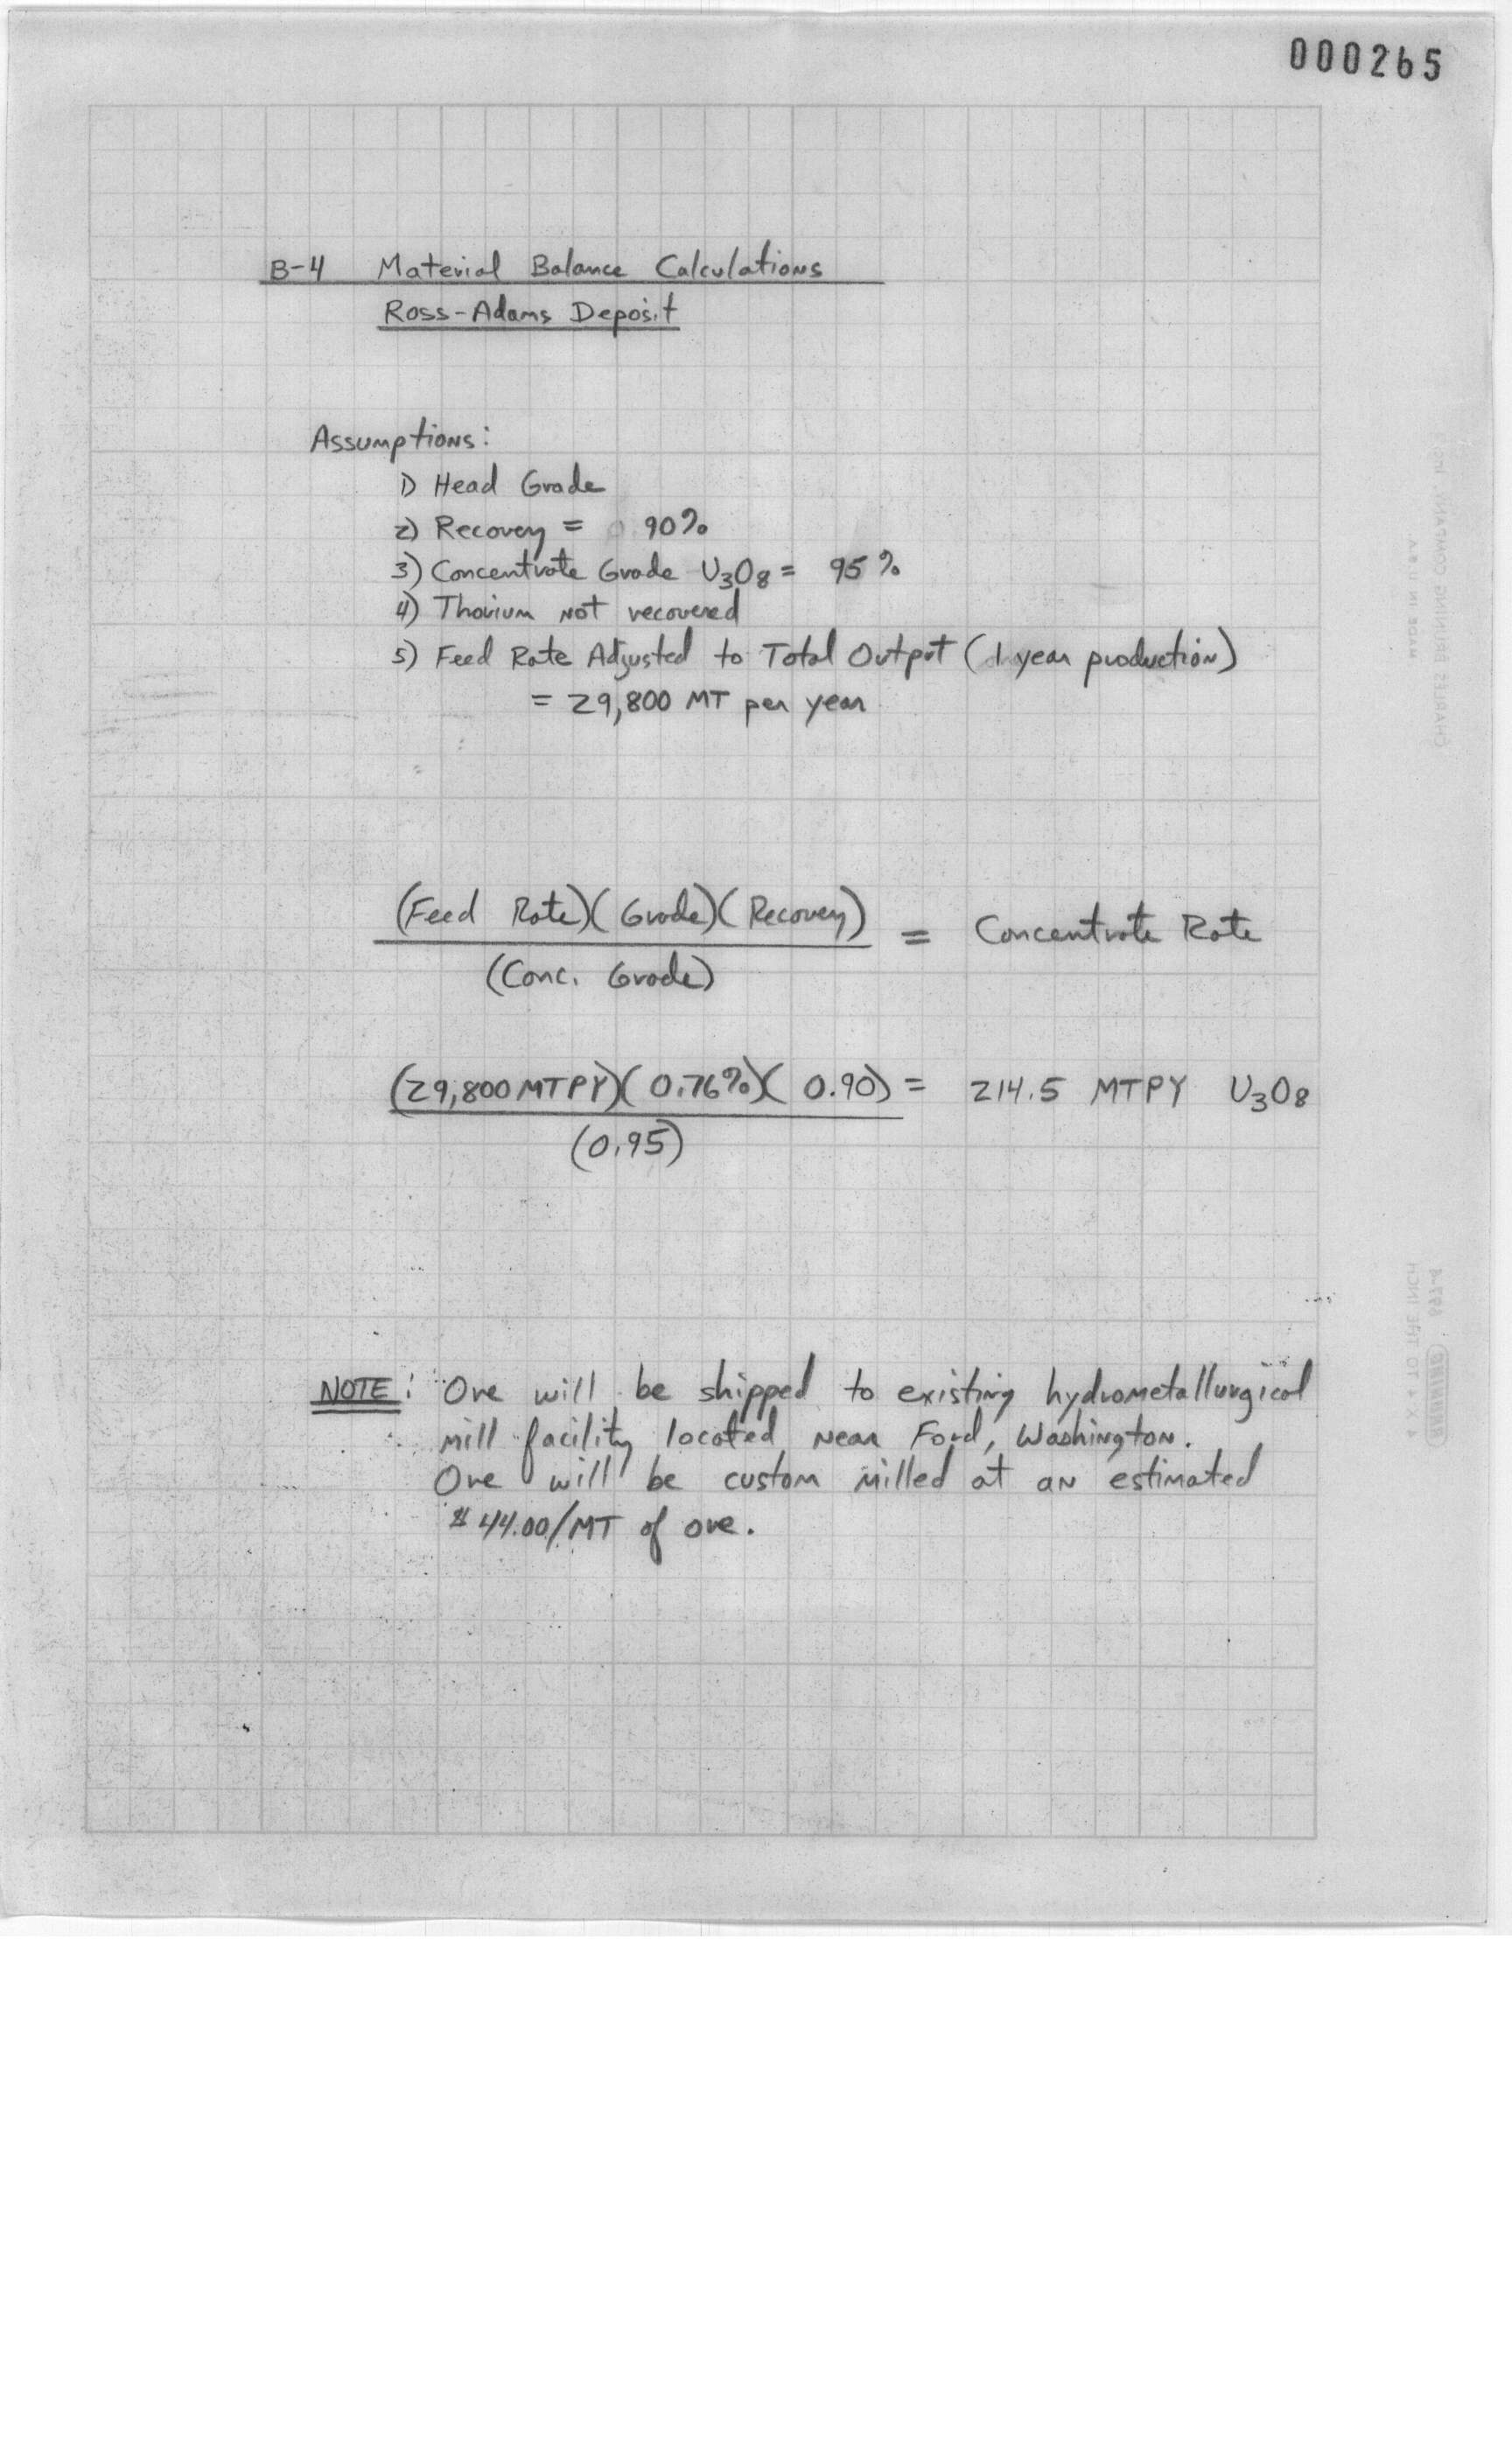 000265
B-4 Material Balance Calculations
Ross-Adams Deposit
Assumptions:
1) Head Grade
2) Recovery = 90%
3) Concentrate Grade U3O8 = 95%
4) Thorium not recovered
5) Feed Rate Adjusted to Total Output (1 year production)
= 29,800 MT per year
(Feed Rate)(Grade)(Recovery) = Concentrate Rate
(Conc. Grade)
(29,800 MTPY)(0.76%)(0.90) = 214.5 MTPY U3O8
(0.95)
NOTE: Ore will be shipped to existing hydrometallurgical
mill facility located near Ford, Washington.
Ore will be custom milled at an estimated
$44.00/MT of ore.
MADE IN U.S.A.
CHARLES BRUNING COMPANY, INC.
4 X 4 TO THE INCH